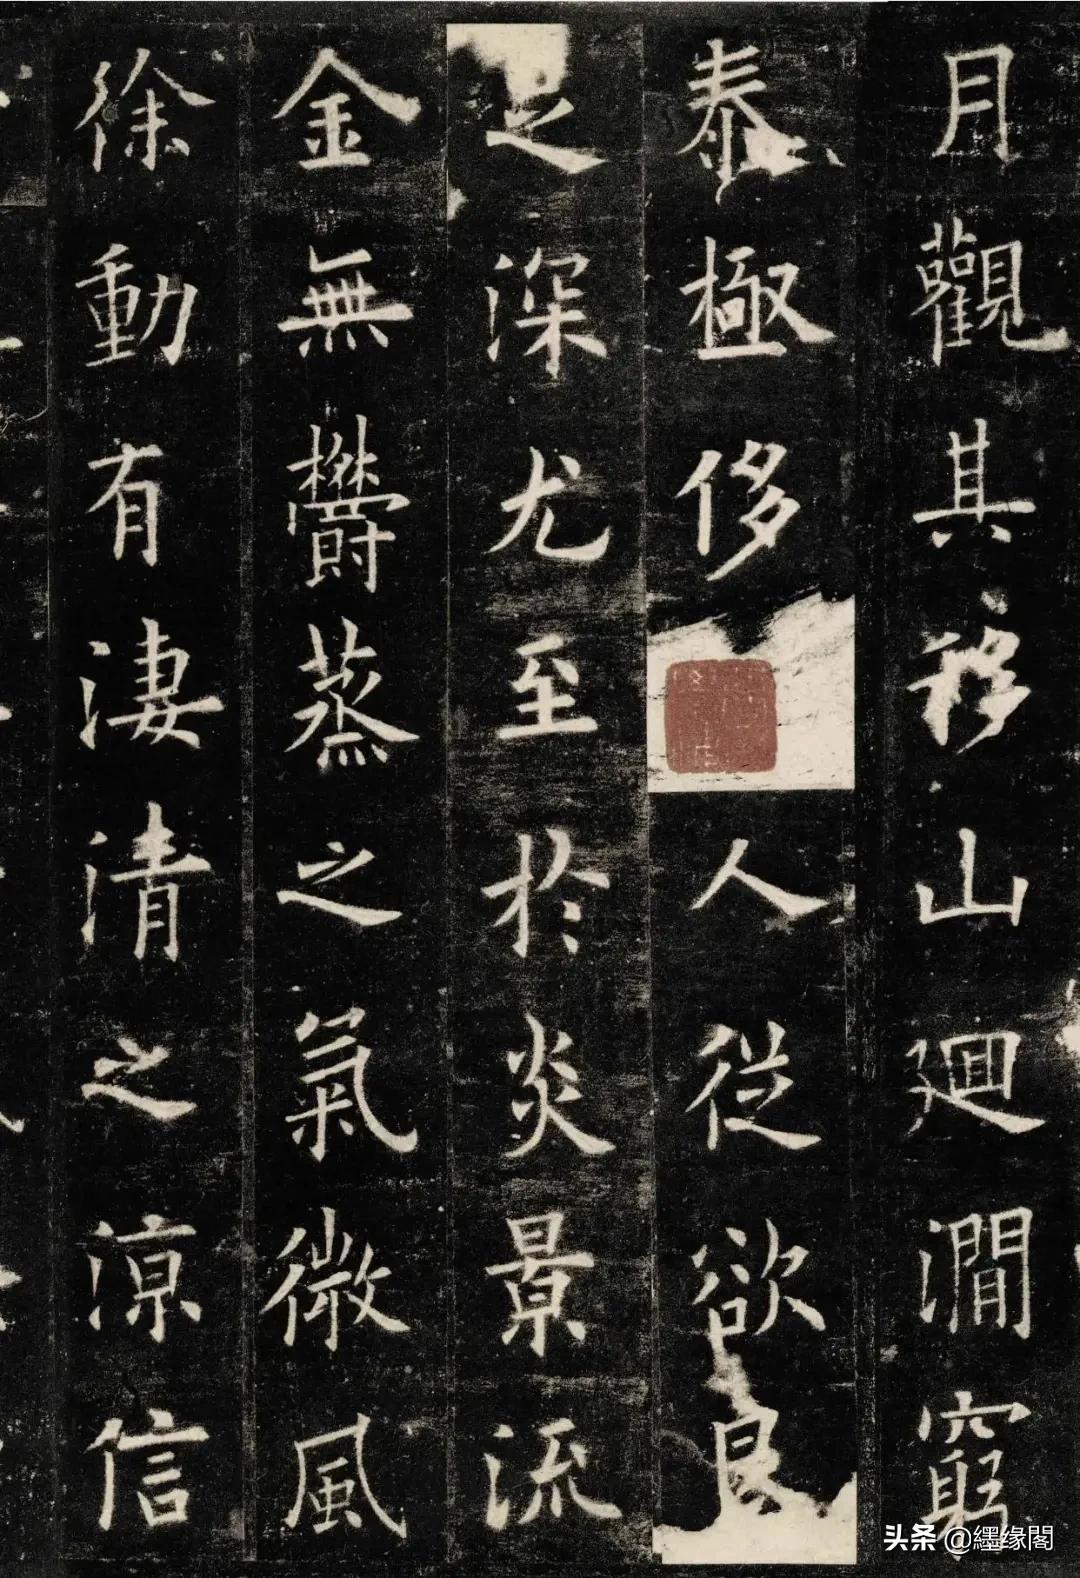 月觀其移山廻澗窮
泰極侈人從欲良
足深尤至於炎景流
金無欝蒸之氣微風
徐動有淒清之涼信
头条 @纆缘閣